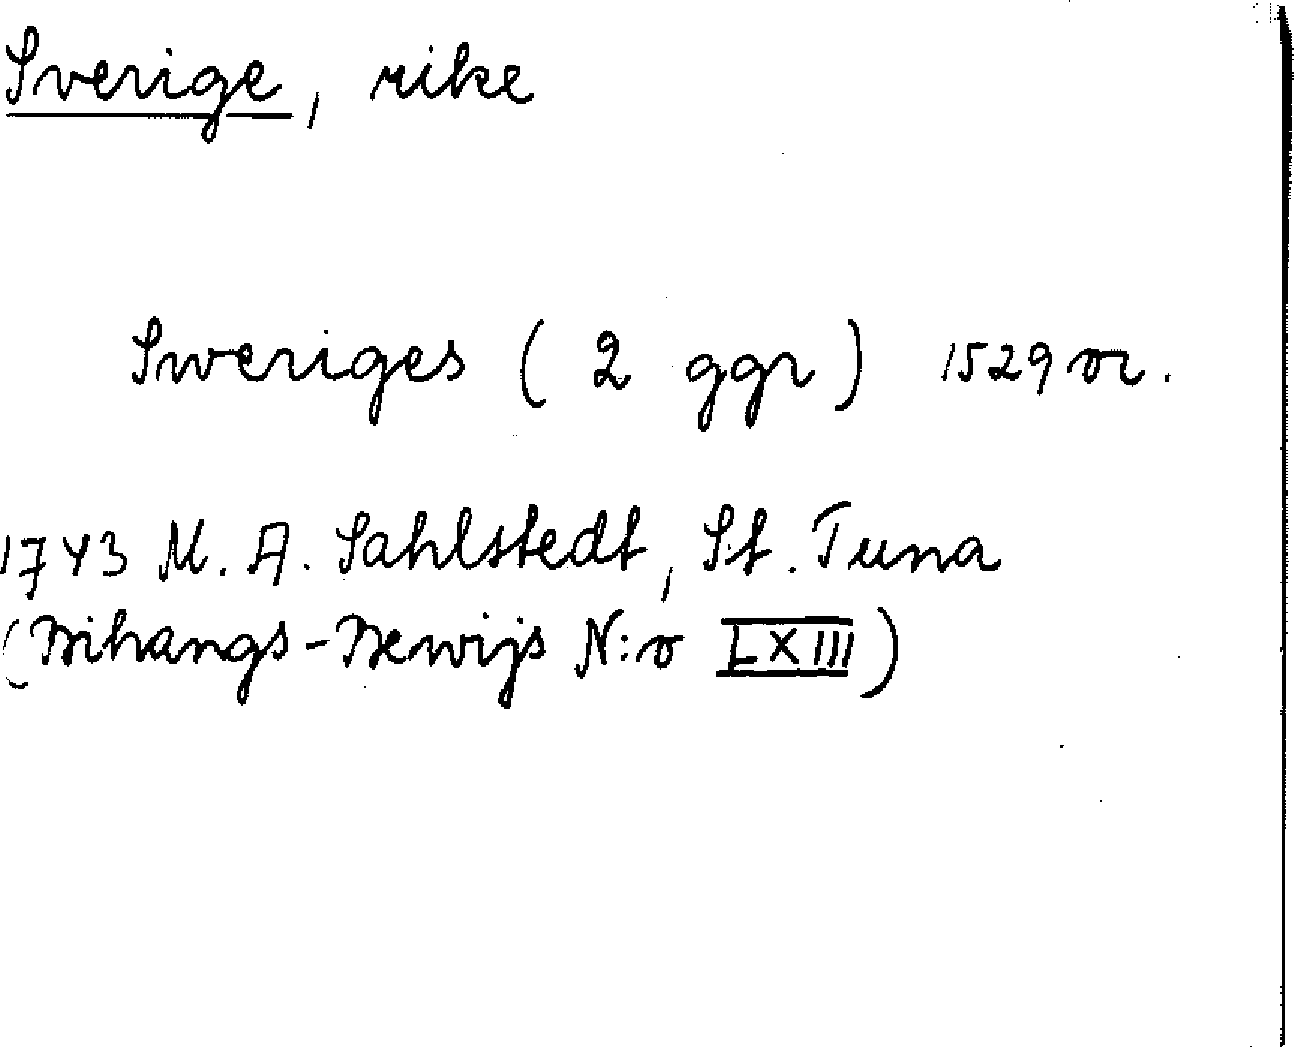 Sverige, rike
Sweriges (2 ggr) 1529 or.
1743 M. A. Sahlstedt, St. Tuna
(Bihangs-Bewijs N:o LXIII)